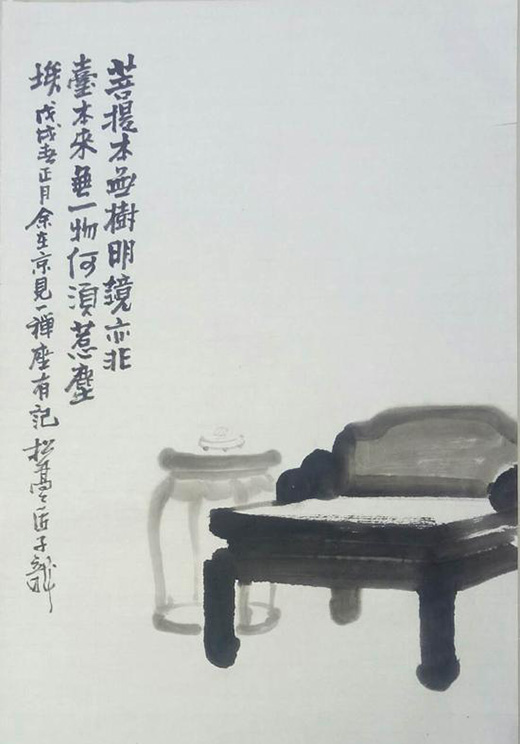 菩提本無樹明鏡亦非
臺本來無一物何須惹塵
埃戊戌春正月余在京見一禪座有記松